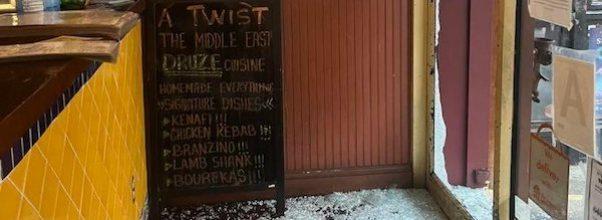 A TWIST
THE MIDDLE EAST
DRUZE CUISINE
HOMEMADE EVERYTHING
SIGNATURE DISHES
KENAFI !!!
CHICKEN KEBAB !!!
BRANZINO!!!
LAMB SHANK !!!
BOUREKAS !!!
A